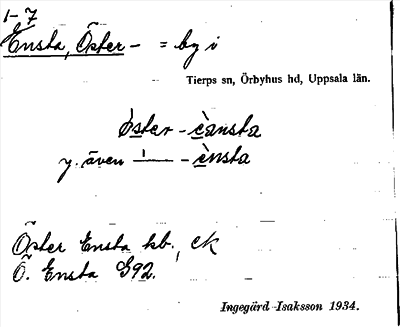 1-7
Ensta, Öster- = by i
Tierps sn, Örbyhus hd, Uppsala län.
öster-èansta
y. även -ènsta
Öster Ensta kb., ck
Ö. Ensta G92.
Ingegärd Isaksson 1934.